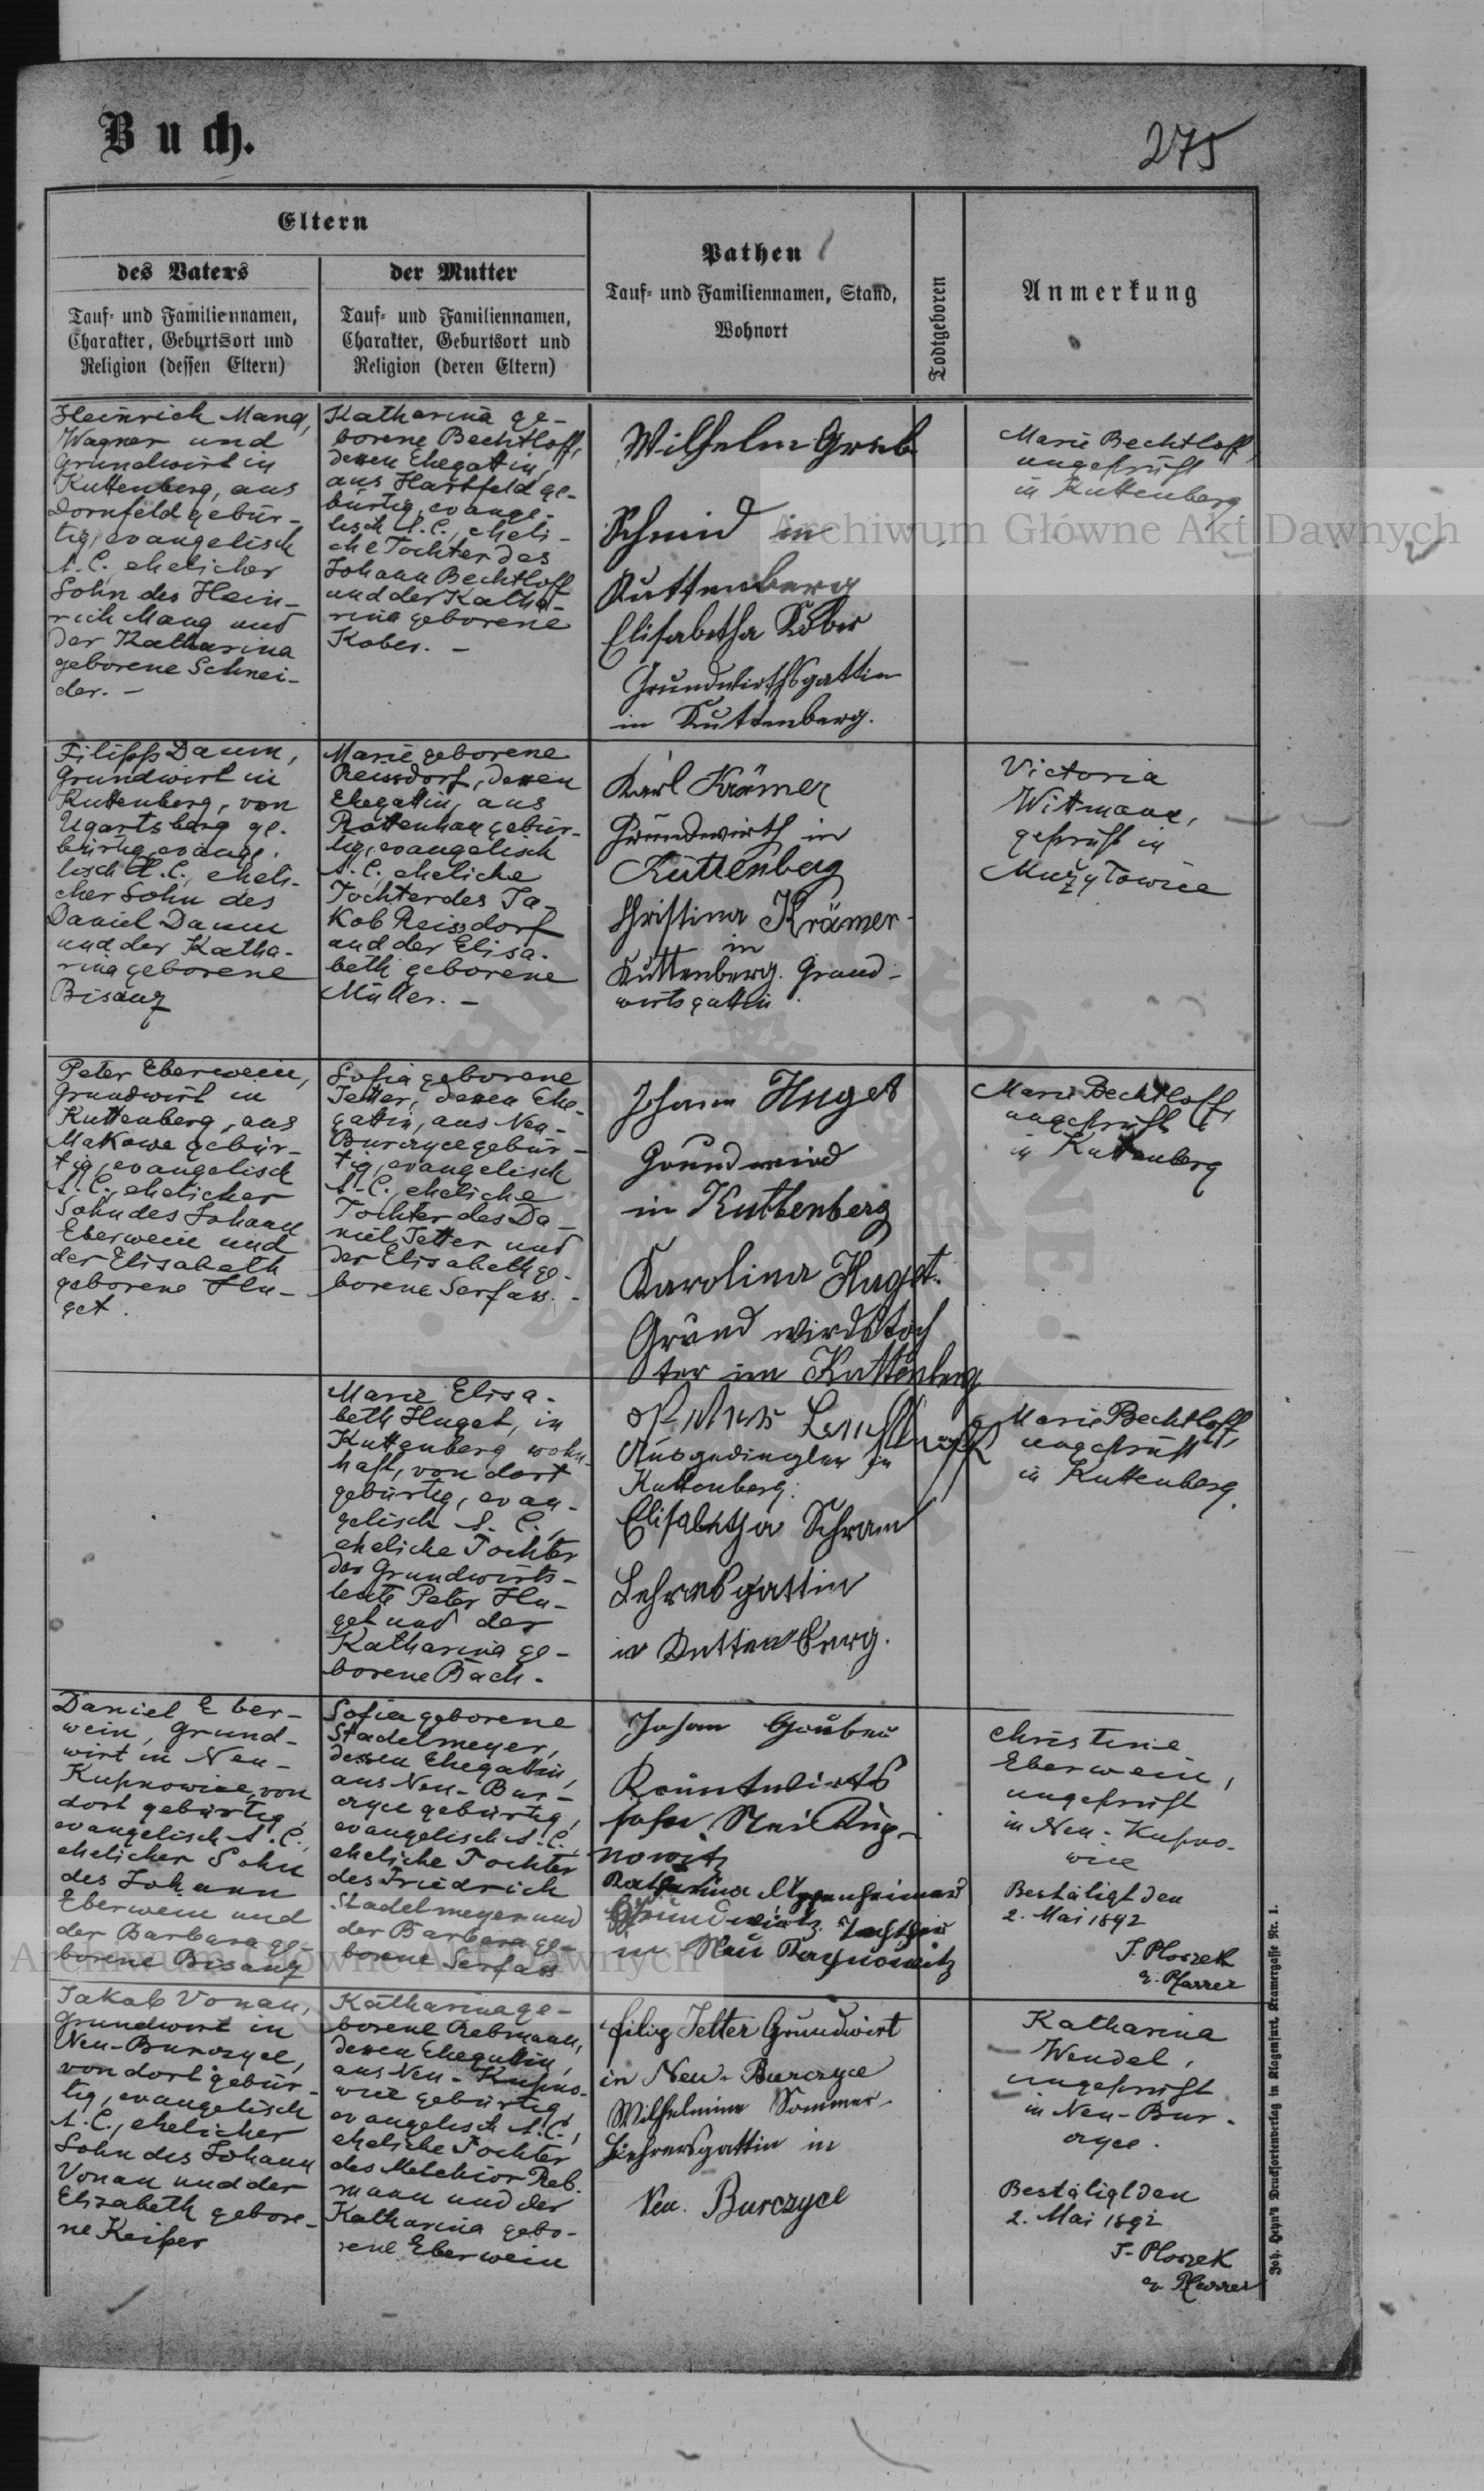 Buch.
275
Eltern
des Vaters
Tauf- und Familiennamen,
Charakter, Geburtsort und
Religion (dessen Eltern)
der Mutter
Tauf- und Familiennamen,
Charakter, Geburtsort und
Religion (deren Eltern)
Pathen
Tauf- und Familiennamen, Stand,
Wohnort
Todtgeboren
Anmerkung
Heinrich Mang,
Wagner und
Grundwirt in
Kuttenberg, aus
Dornfeld gebür-
tig, evangelisch
A.C., ehelicher
Sohn des Hein-
rich Mang und
der Katharina
geborene Schnei-
der. –
Katharina ge-
borene Bechtloff,
dessen Ehegattin,
aus Hartfeld ge-
bürtig, evange-
lisch A.C., eheli-
che Tochter des
Johann Bechtloff
und der Katha-
rina geborene
Kober. –
Wilhelm Greb
Schmid in
Kuttenberg
Elisabetha Kober
Grundwirthsgattin
in Kuttenberg.
Marie Bechtloff,
ungeprüft
in Kuttenberg
Filipp Daum,
Grundwirt in
Kuttenberg, von
Ugartsberg ge-
bürtig, evange-
lisch A.C., eheli-
cher Sohn des
Daniel Daum
und der Katha-
rina geborene
Bisanz
Marie geborene
Reissdorf, dessen
Ehegattin, aus
Rottenhan gebür-
tig, evangelisch
A.C., eheliche
Tochter des Ja-
kob Reissdorf
und der Elisa-
beth geborene
Müller. –
Karl Krämer
Grundwirth in
Kuttenberg
Christina Krämer
in
Kuttenberg. Grund-
wirtsgattin.
Victoria
Wittmann,
geprüft in
Mużyłowice
Peter Eberwein,
Grundwirt in
Kuttenberg, aus
Makowe gebür-
tig, evangelisch
A.C., ehelicher
Sohn des Johann
Eberwein und
der Elisabeth
geborene Hu-
get.
Sofia geborene
Jetter, dessen Ehe-
gattin, aus Neu-
Burczyce gebür-
tig, evangelisch
A.C., eheliche
Tochter des Da-
niel Jetter und
der Elisabeth ge-
borene Serfass. –
Johann Huget
Grundwird
in Kuttenberg
Karolina Huget.
Grund wirdstoch
ter in Kuttenberg
Marie Bechtloff,
ungeprüft
in Kuttenberg
Marie Elisa-
beth Huget, in
Kuttenberg wohn-
haft, von dort
gebürtig, evan-
gelisch A.C.,
eheliche Tochter
der Grundwirts-
leute Peter Hu-
get und der
Katharina ge-
borene Bach.
Ausgedingler in
Kuttenberg.
Elisabetha Schram
Lehresgattin
in Kuttenberg.
Marie Bechtloff,
ungeprüft
in Kuttenberg.
Daniel Eber-
wein, Grund-
wirt in Neu-
Kupnowice, von
dort gebürtig,
evangelisch A.C.,
ehelicher Sohn
des Johann
Eberwein und
der Barbara ge-
borene Bisanz
Sofia geborene
Stadelmeyer,
dessen Ehegattin,
aus Neu-Bur-
czyce gebürtig,
evangelisch A.C.,
eheliche Tochter
des Friedrich
Stadelmeyer und
der Barbara ge-
borene Serfass
Johan Gruber
nowitz
Katharina
in Neu
Christine
Eberwein,
ungeprüft
in Neu-Kupno-
wice
Bestätigt den
2. Mai 1892
J. Ploszek
e. Pfarrer
Jakob Vonau,
Grundwirt in
Neu-Burczyce,
von dort gebür-
tig, evangelisch
A.C., ehelicher
Sohn des Johann
Vonau und der
Elisabeth gebore-
ne Keiper
Katharina ge-
borene Rebmann,
dessen Ehegattin,
aus Neu-Kupno-
wice gebürtig,
evangelisch A.C.,
eheliche Tochter
des Melchior Reb-
mann und der
Katharina gebo-
rene Eberwein
Filip Jetter Grundwirt
in Neu-Burczyce
Wilhelmine Sommer
Lehrersgattin in
Neu. Burczyce
Katharina
Wendel,
ungeprüft
in Neu-Bur-
czyce.
Bestätigt den
2. Mai 1892
J. Ploszek
e. Pfarrer
Joh. Heyn's Drucksortenverlag in Klagenfurt, Kramergasse Nr. 1.
Archiwum Główne Akt Dawnych
Archiwum Główne Akt Dawnych